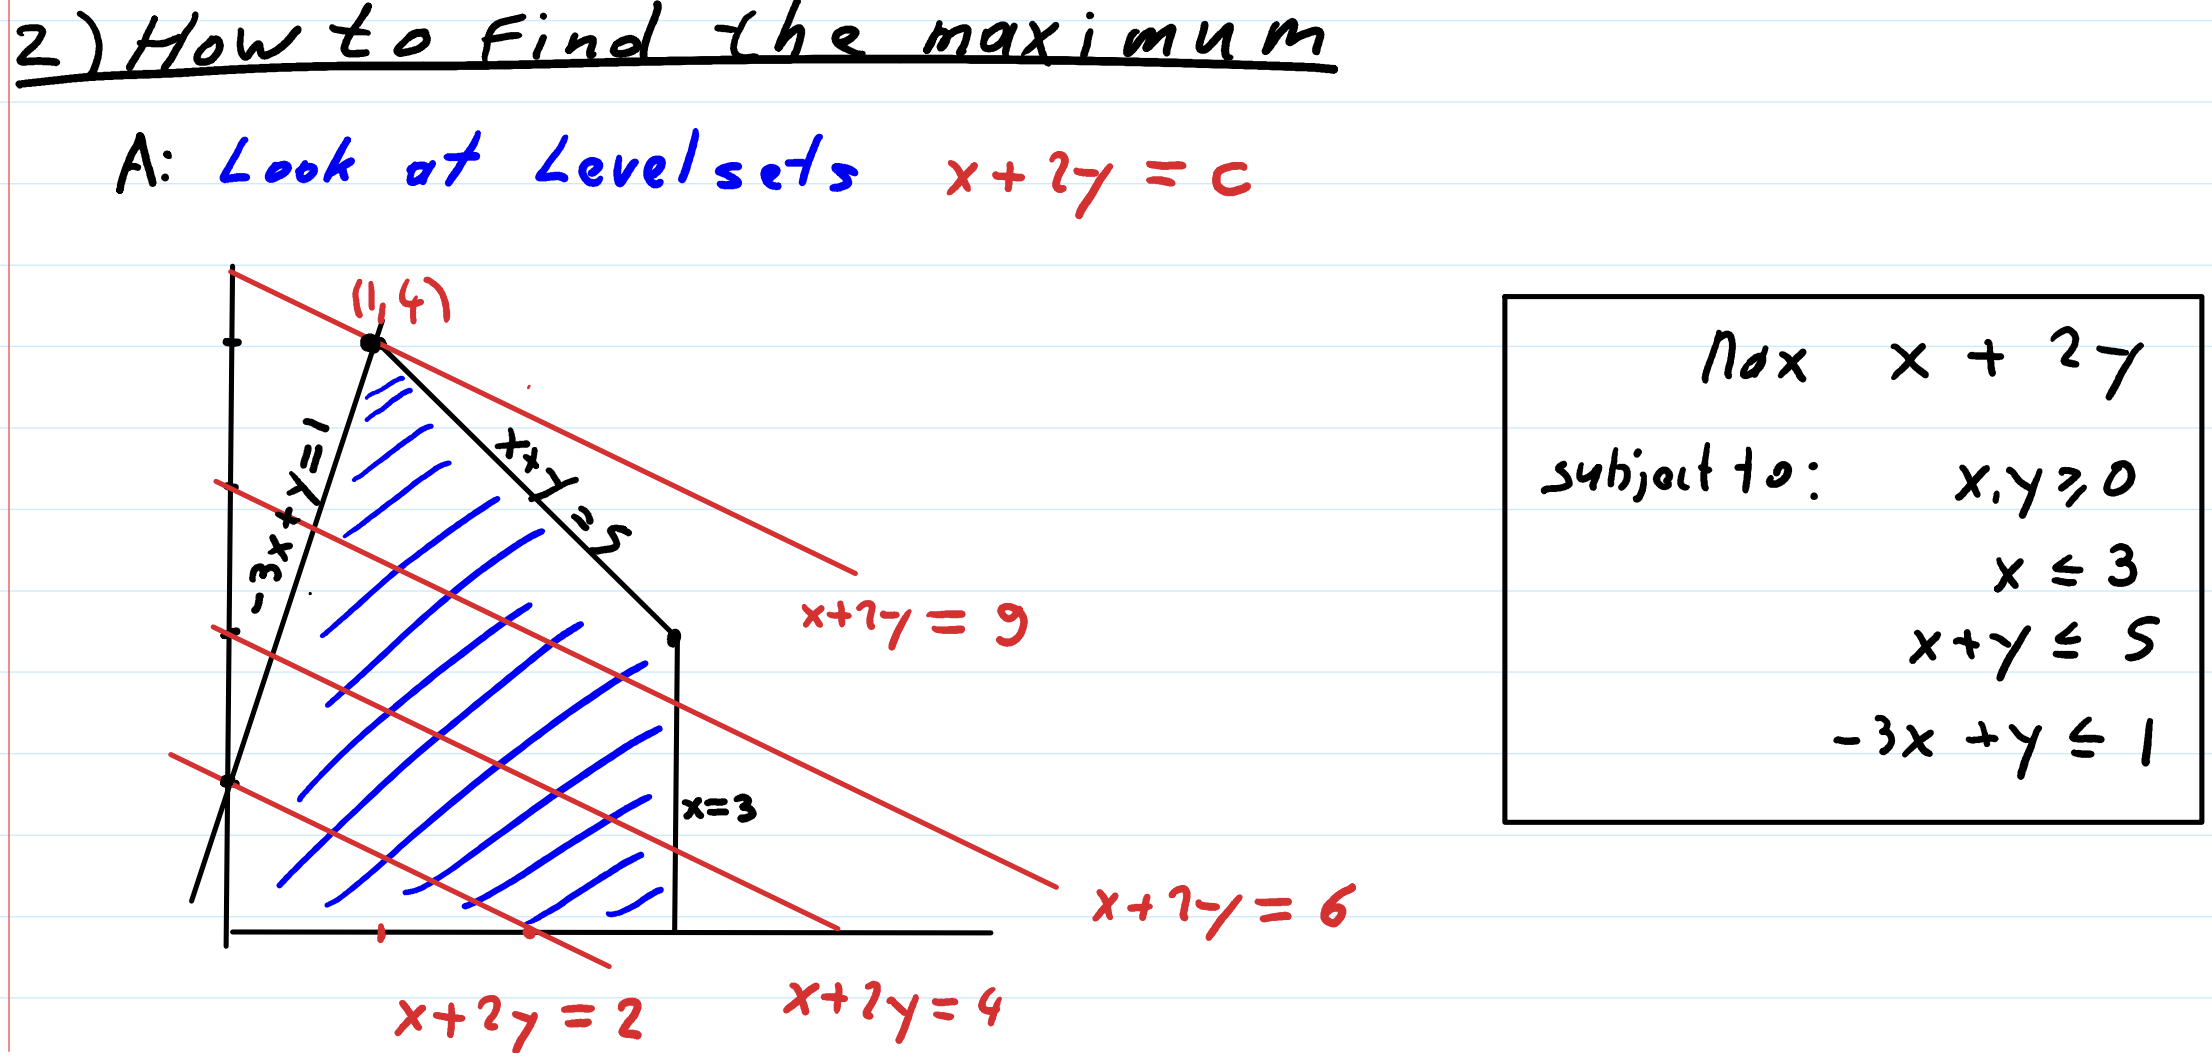 2) How to Find the maximum
A: Look at Level sets x+2y = c
(1,4)
-3x+y=1
x+y=5
x+2y=9
x=3
x+2y=6
x+2y=2
x+2y=4
Max x + 2y
subject to: x,y ≥ 0
x ≤ 3
x+y ≤ 5
-3x+y ≤ 1